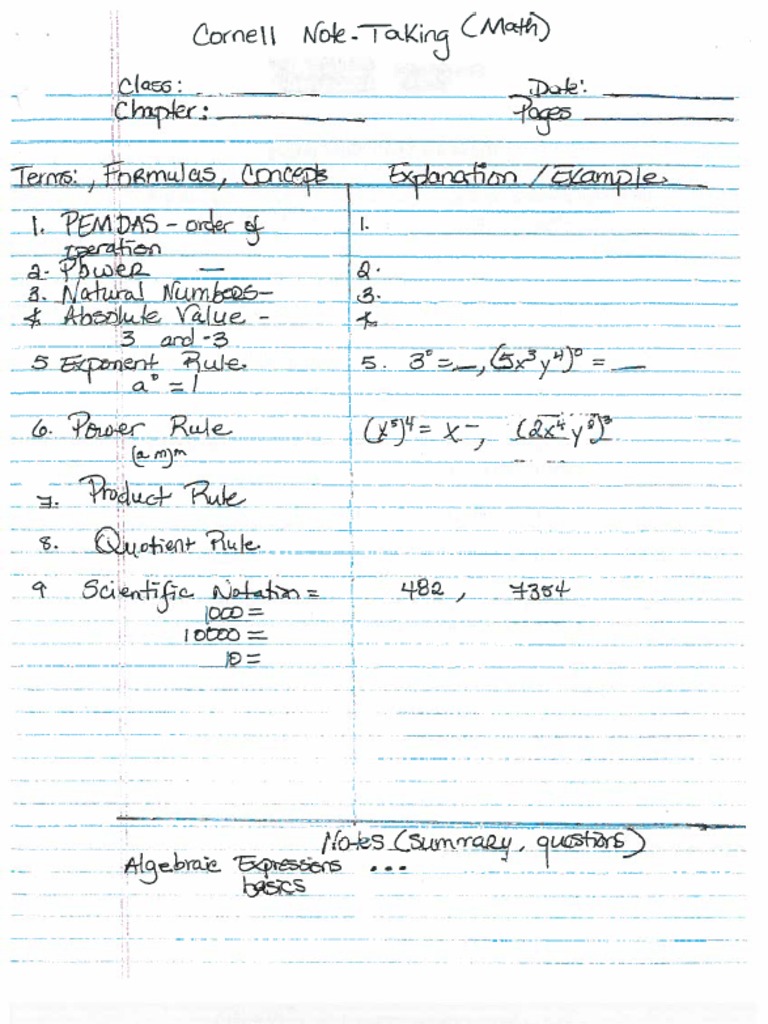 Cornell Note-Taking (Math)
Class: ____ Date: ____
Chapter: ____ Pages ____
Terms:, Formulas, Concepts Explanation / Example
1. PEMDAS - order of 1.
operation
2. Power — 2.
3. Natural Numbers- 3.
4. Absolute Value - 4
3 and -3
5 Exponent Rule. 5. 3⁰ = __, (5x³y⁴)⁰ = __
a⁰ = 1
6. Power Rule (x⁵)⁴ = x –, (2x⁴y⁸)³
(a m)ᵐ
7. Product Rule
8. Quotient Rule.
9 Scientific Notation = 482, 7354
1000 =
10000 =
10 =
Notes (summary, questions)
Algebraic Expressions ...
basics